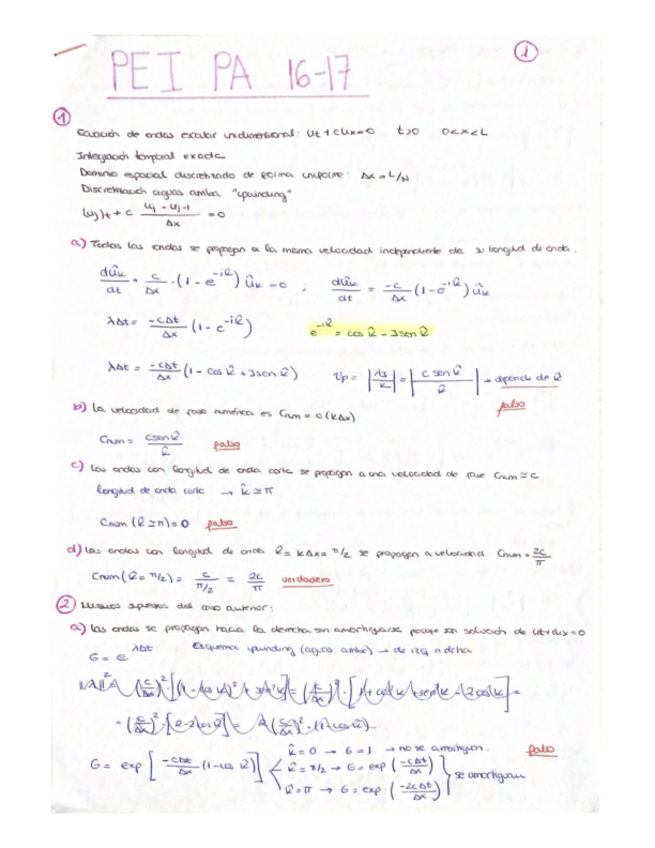 1
PEI PA 16-17
1
Ecuación de ondas escalar unidimensional: Ut + cUx = 0 t>0 0<x<L
Integración temporal exacta
Dominio espacial discretizado de forma uniforme: Δx = L/N
Discretización aguas arriba "upwinding"
(uj)t + c (uj - uj-1)/Δx = 0
a) Todas las ondas se propagan a la misma velocidad independiente de su longitud de onda.
dûk/dt + c/Δx · (1 - e^-ik̂) ûk = 0 ; dûk/dt = -c/Δx (1 - e^-ik̂) ûk
λΔt = -cΔt/Δx (1 - e^-ik̂) e^-ik̂ = cos k̂ - Jsen k̂
λΔt = -cΔt/Δx (1 - cos k̂ + Jsen k̂) Vp = |λs/k| = |c sen k̂/k̂| → depende de k̂
falso
b) La velocidad de fase numérica es Cnum = c(kΔx)
Cnum = csen k̂/k̂ falso
c) Las ondas con longitud de onda corta se propagan a una velocidad de fase Cnum ≃ c
longitud de onda corta → k̂ ≃ π
Cnum (k̂ ≃ π) = 0 falso
d) Las ondas con longitud de onda k̂ = kΔx = π/2 se propagan a velocidad Cnum = 2c/π
Cnum (k̂ = π/2) = c/(π/2) = 2c/π verdadero
2 Mismos supuestos del caso anterior:
a) Las ondas se propagan hacia la derecha sin amortiguarse porque son solución de ut + cux = 0
G = e^λΔt Esquema upwinding (aguas arriba) → de izq a dcha
G = exp [-cΔt/Δx (1 - cos k̂)] k̂ = 0 → G = 1 → no se amortiguan. falso
k̂ = π/2 → G = exp (-cΔt/Δx)
k̂ = π → G = exp · (-2cΔt/Δx) se amortiguan